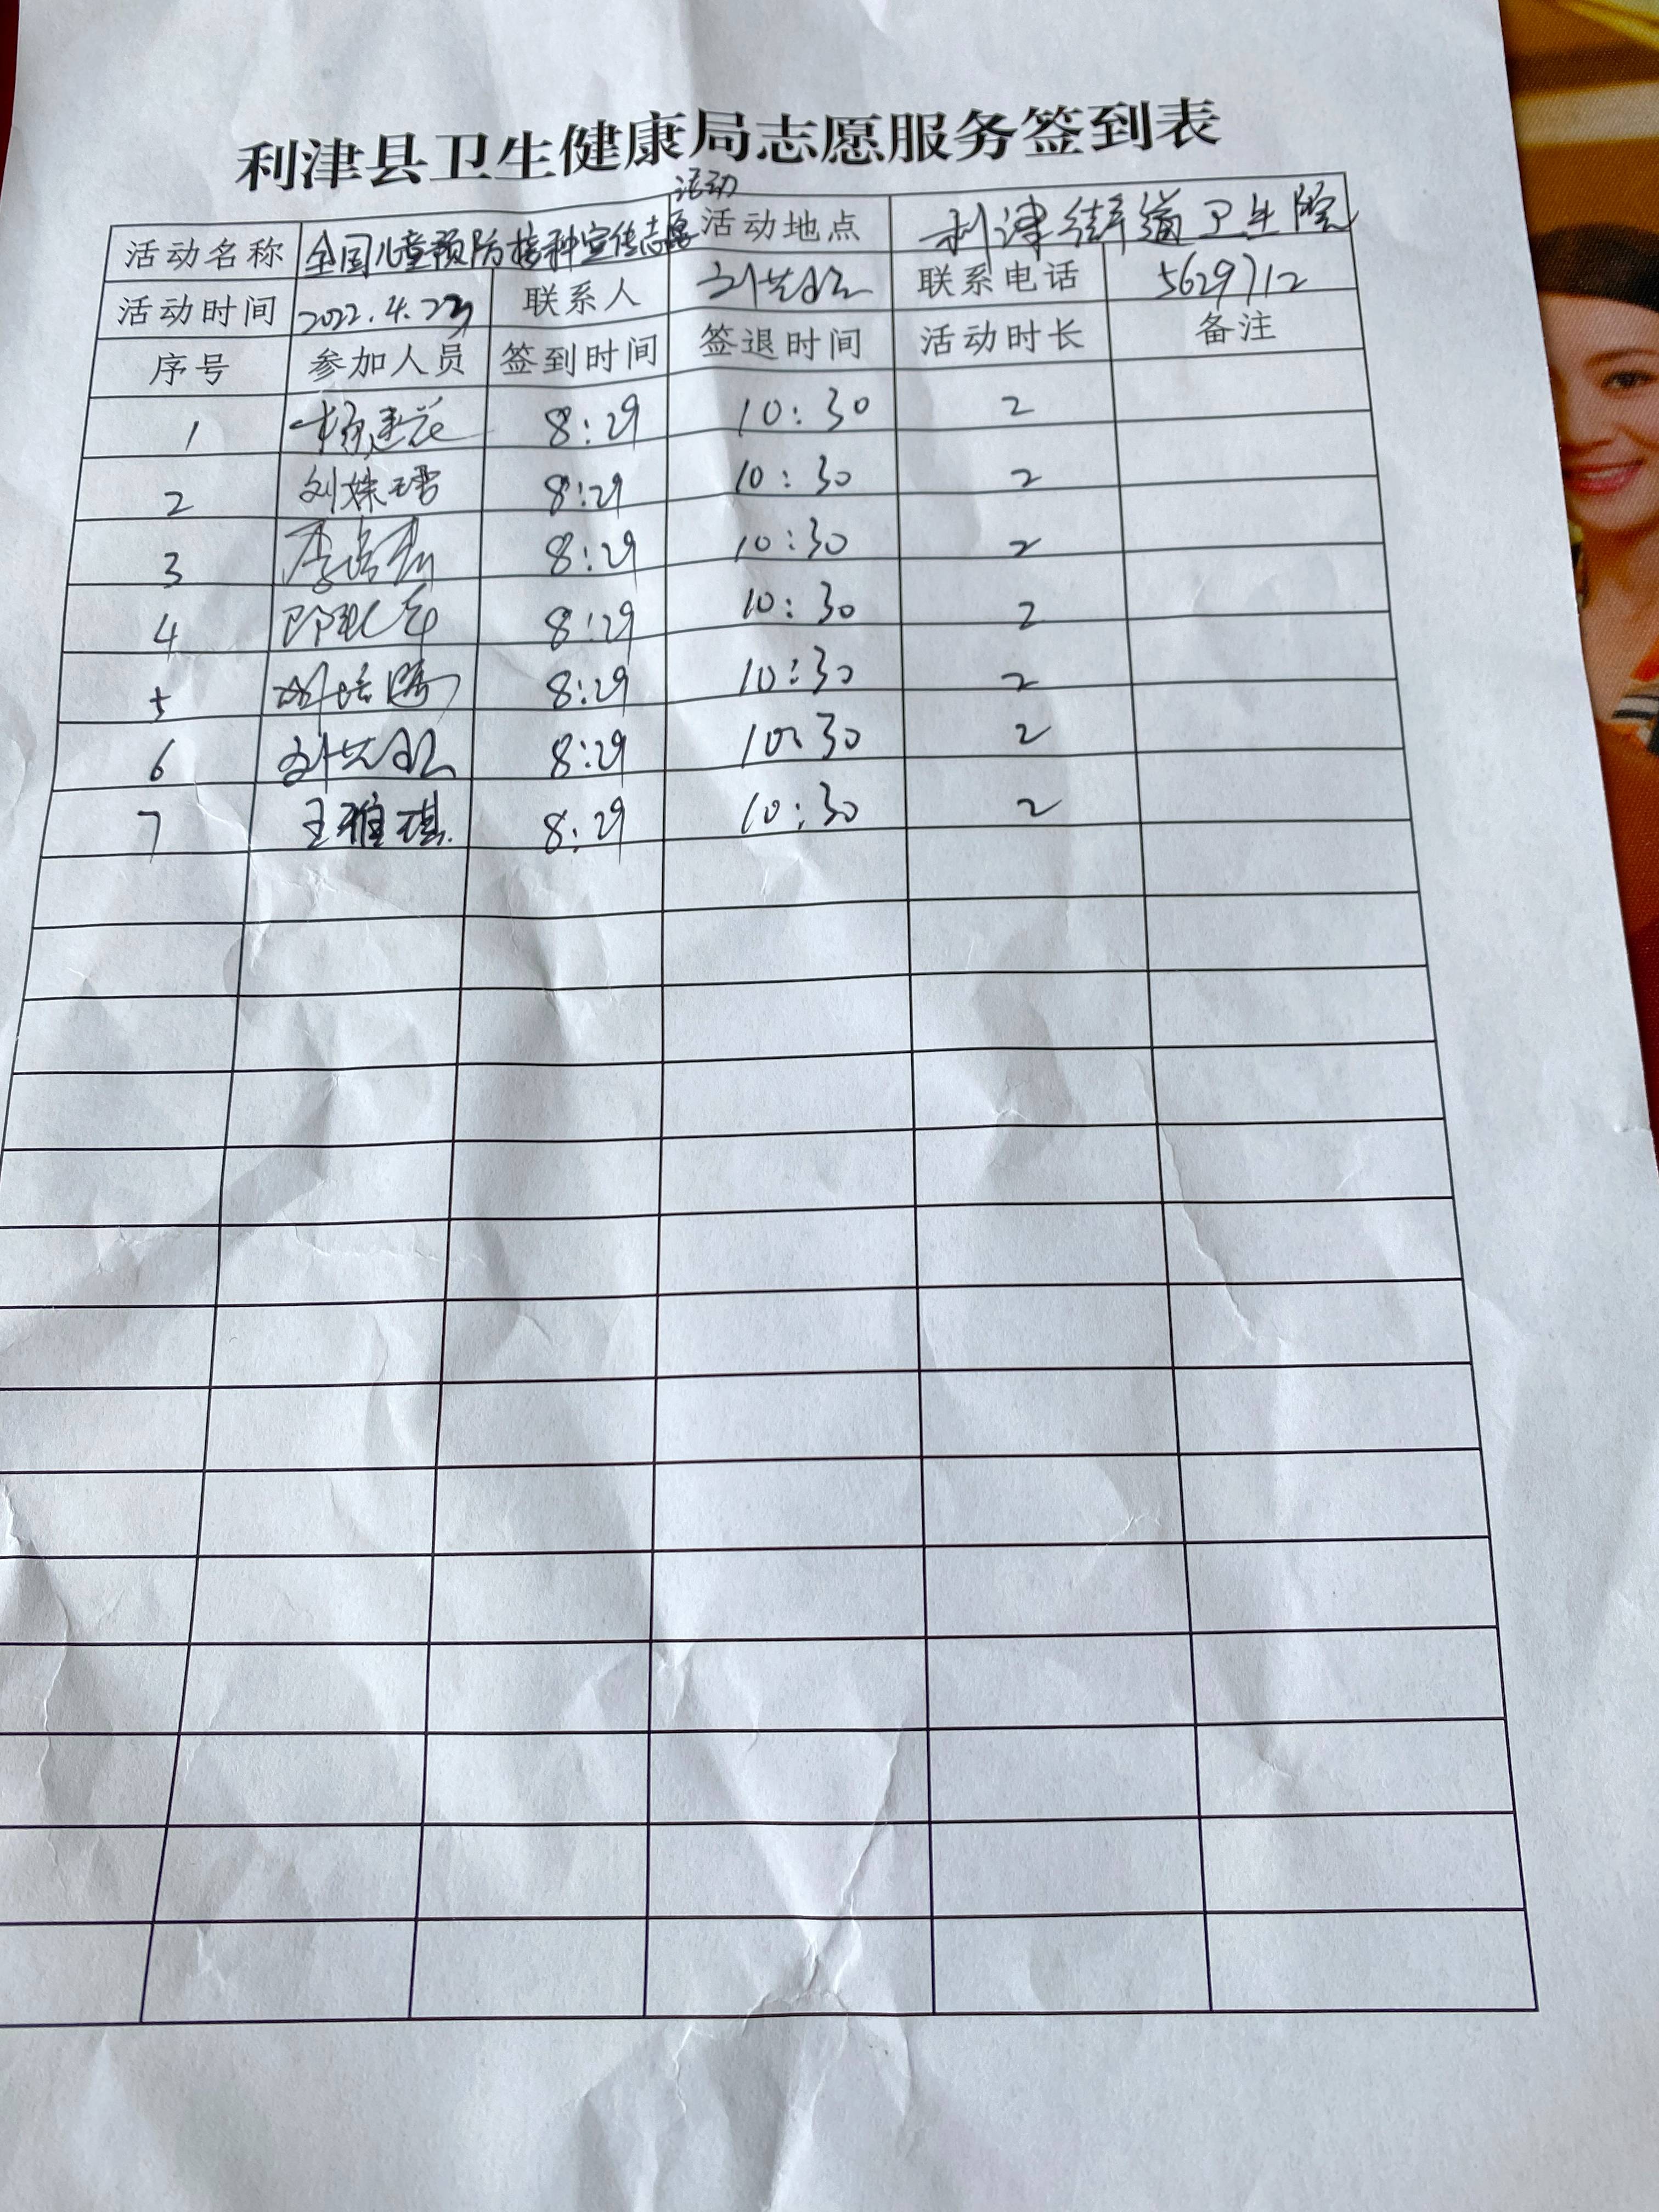 利津县卫生健康局志愿服务签到表
活动
活动名称 全国儿童预防接种宣传志愿 活动地点 利津街道卫生院
活动时间 2022.4.23 联系人 联系电话 5629712
序号 参加人员 签到时间 签退时间 活动时长 备注
1 8:29 10:30 2
2 8:29 10:30 2
3 8:29 10:30 2
4 8:29 10:30 2
5 8:29 10:30 2
6 8:29 10:30 2
7 王雅琪 8:29 10:30 2